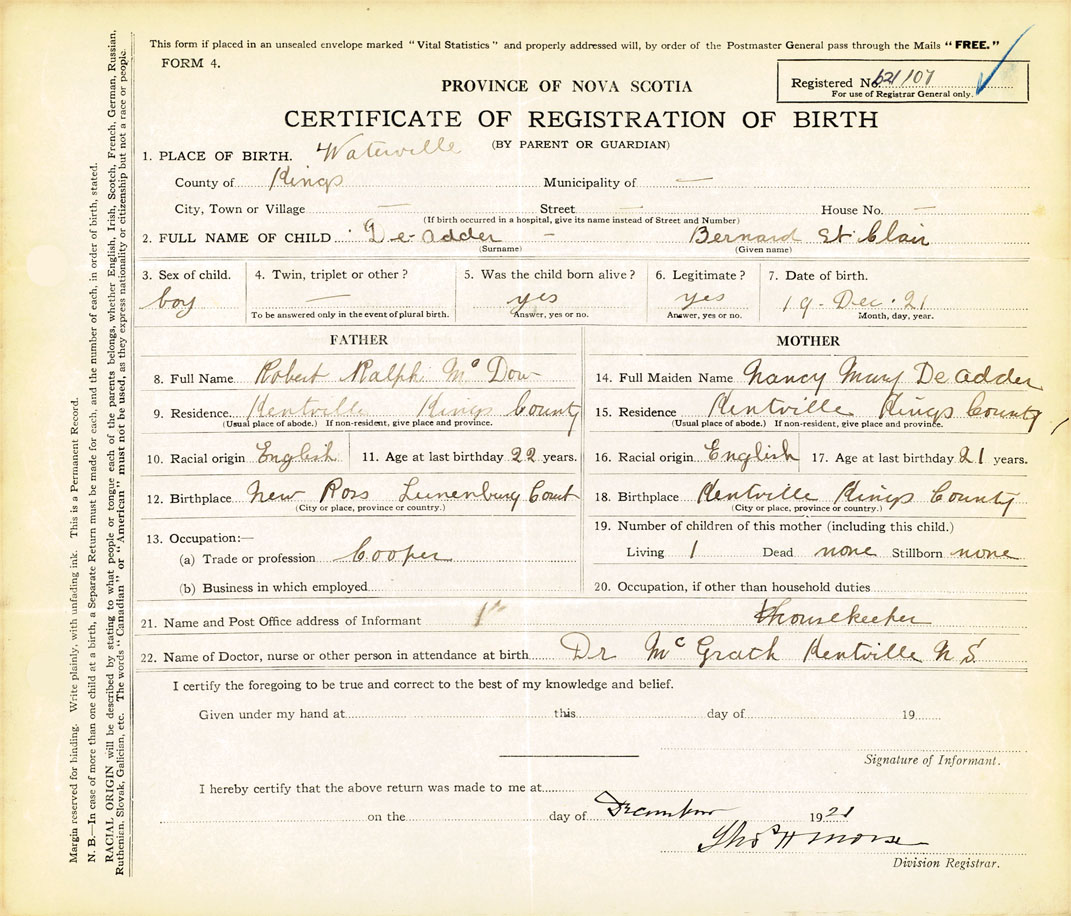 This form if placed in an unsealed envelope marked "Vital Statistics" and properly addressed will, by order of the Postmaster General pass through the Mails "FREE."
FORM 4.
Registered No. 107
For use of Registrar General only.
PROVINCE OF NOVA SCOTIA
CERTIFICATE OF REGISTRATION OF BIRTH
(BY PARENT OR GUARDIAN)
1. PLACE OF BIRTH. Waterville
County of Kings Municipality of —
City, Town or Village — Street — House No. —
(If birth occurred in a hospital, give its name instead of Street and Number)
2. FULL NAME OF CHILD De-adder - Bernard St Clair
(Surname) (Given name)
3. Sex of child. 4. Twin, triplet or other? 5. Was the child born alive? 6. Legitimate? 7. Date of birth.
boy — yes yes 19 - Dec. 21
To be answered only in the event of plural birth. Answer, yes or no. Answer, yes or no. Month, day, year.
FATHER
8. Full Name Robert Ralph Mc Dow
9. Residence. Kentville Kings County
(Usual place of abode.) If non-resident, give place and province.
10. Racial origin English 11. Age at last birthday 22 years.
12. Birthplace New Ross Lunenburg Count
(City or place, province or country.)
13. Occupation:—
(a) Trade or profession Cooper
(b) Business in which employed
MOTHER
14. Full Maiden Name Nancy Mary De adder
15. Residence Kentville Kings County
(Usual place of abode.) If non-resident, give place and province.
16. Racial origin English 17. Age at last birthday 21 years.
18. Birthplace Kentville Kings County
(City or place, province or country.)
19. Number of children of this mother (including this child.)
Living 1 Dead none Stillborn none
20. Occupation, if other than household duties
21. Name and Post Office address of Informant housekeeper
22. Name of Doctor, nurse or other person in attendance at birth Dr McGrath Kentville N S.
I certify the foregoing to be true and correct to the best of my knowledge and belief.
Given under my hand at this day of 19
Signature of Informant.
I hereby certify that the above return was made to me at
on the day of December 1921
Thos H Morse
Division Registrar.
Margin reserved for binding. Write plainly, with unfading ink. This is a Permanent Record.
N. B.—In case of more than one child at a birth, a Separate Return must be made for each, and the number of each, in order of birth, stated.
RACIAL ORIGIN will be described by stating to what people or tongue each of the parents belongs, whether English, Irish, Scotch, French, German, Russian,
Ruthenian, Slovak, Galician, etc. The words "Canadian" or "American" must not be used, as they express nationality or citizenship but not a race or people.